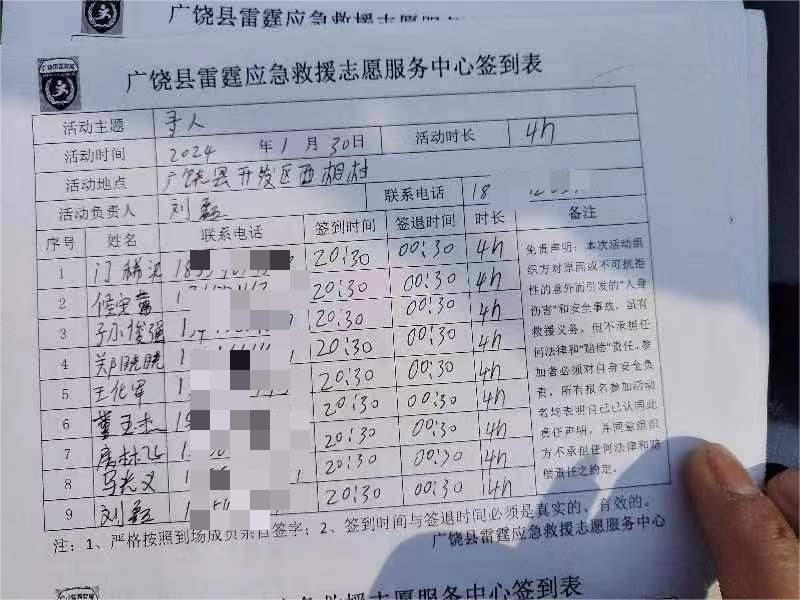 广饶县雷霆应急救援志愿服务中心签到表
活动主题 寻人
活动时间 2024 年1月30日 活动时长 4h
活动地点 广饶县开发区西相村
活动负责人 刘磊 联系电话 18
序号 姓名 联系电话 签到时间 签退时间 时长 备注
1 门 20:30 00:30 4h
2 20:30 00:30 4h
3 孙俊强 20:30 00:30 4h
4 郑晓晓 20:30 00:30 4h
5 王化军 20:30 00:30 4h
6 董玉杰 20:30 00:30 4h
7 唐林飞 20:30 00:30 4h
8 马光义 20:30 00:30 4h
9 刘磊 20:30 00:30 4h
免责声明：本次活动组
织方对原因或不可抗拒
性的意外而引发的“人身
伤害”和安全事故，虽有
救援义务，但不承担任
何法律和“赔偿”责任。参
加者必须对自身安全负
责，所有报名参加活动
者均表明自己已认同此
责任声明，并同意组织
方不承担任何法律和赔
偿责任之约定。
注：1、严格按照到场成员亲自签字；2、签到时间与签退时间必须是真实的、有效的。
广饶县雷霆应急救援志愿服务中心
应急救援志愿服务中心签到表